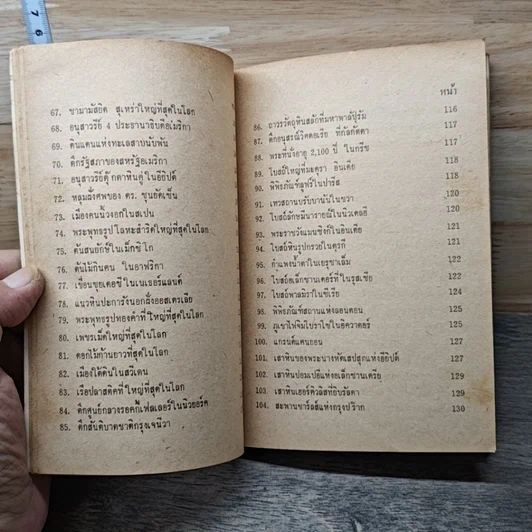 7 6
67. ชามามัสยิด สุเหร่าใหญ่ที่สุดในโลก
68. อนุสาวรีย์ 4 ประธานาธิบดีอเมริกา
69. ดินแดนแห่งทะเลสาบนับพัน
70. ตึกรัฐสภาของสหรัฐอเมริกา
71. อนุสาวรีย์ตุ๊กตาหินคู่ในอียิปต์
72. หลุมฝังศพของ ดร. ซุนยัดเซ็น
73. เมืองคนน้วงอกในสเปน
74. พระพุทธรูปโลหะสำริดใหญ่ที่สุดในโลก
75. ต้นสนยักษ์ในเม็กซิโก
76. ต้นไม้กินคน ในอาฟริกา
77. เขื่อนซุยเดอซีในเนเธอร์แลนด์
78. แนวหินปะการังนอกฝั่งออสเตรเลีย
79. พระพุทธรูปทองคำที่ใหญ่ที่สุดในโลก
80. เพชรเม็ดใหญ่ที่สุดในโลก
81. ดอกไม้ก้านยาวที่สุดในโลก
82. เมืองใต้ดินในสวีเดน
83. เรือปลาสติคที่ใหญ่ที่สุดในโลก
84. ตึกศูนย์กลางรอคกี้เฟลเลอร์ในนิวยอร์ค
85. ตึกสันติบาตชาติกรุงเจนีวา
หน้า
86. ถาวรวัตถุหินสลักที่มหาพาลีปุรัม 116
87. ตึกอนุสรณ์วิคตอเรีย ที่กัลกัตตา 117
88. พระที่นั่งอายุ 2,100 ปี ในกรีซ 117
89. โบสถ์ใหญ่ที่มะดุรา อินเดีย 118
90. พิพิธภัณฑ์ลูฟร์ในปารีส 118
91. เทวสถานบรัมบานันในชวา 120
92. โบสถ์ลักษมีนารายณ์ในนิวเดลฮี 120
93. พระราชวังแมนซิงก์ในอินเดีย 121
94. โบสถ์หินรูปกรวยในตุรกี 121
95. กำแพงน้ำตาในเยรูซาเล็ม 122
96. โบสถ์อเล็กซานเดอร์ที่ในรุสเซีย 122
97. โบสถ์พาลมิราในซีเรีย 124
98. พิพิธภัณฑ์สถานแห่งลอนดอน 125
99. ภูเขาไฟจิมโบราโซในอิควาดอร์ 125
100. แกรนด์แคนยอน 127
101. เสาหินของพระนางหัตเสปสุตแห่งอียิปต์ 127
102. เสาหินปอมเปอีแห่งอเล็กซานเดรีย 129
103. เสาหินเฮอร์คิวลิสที่ยิบรัลตา 129
104. สะพานชาร์ลส์แห่งกรุงปร๊าก 130